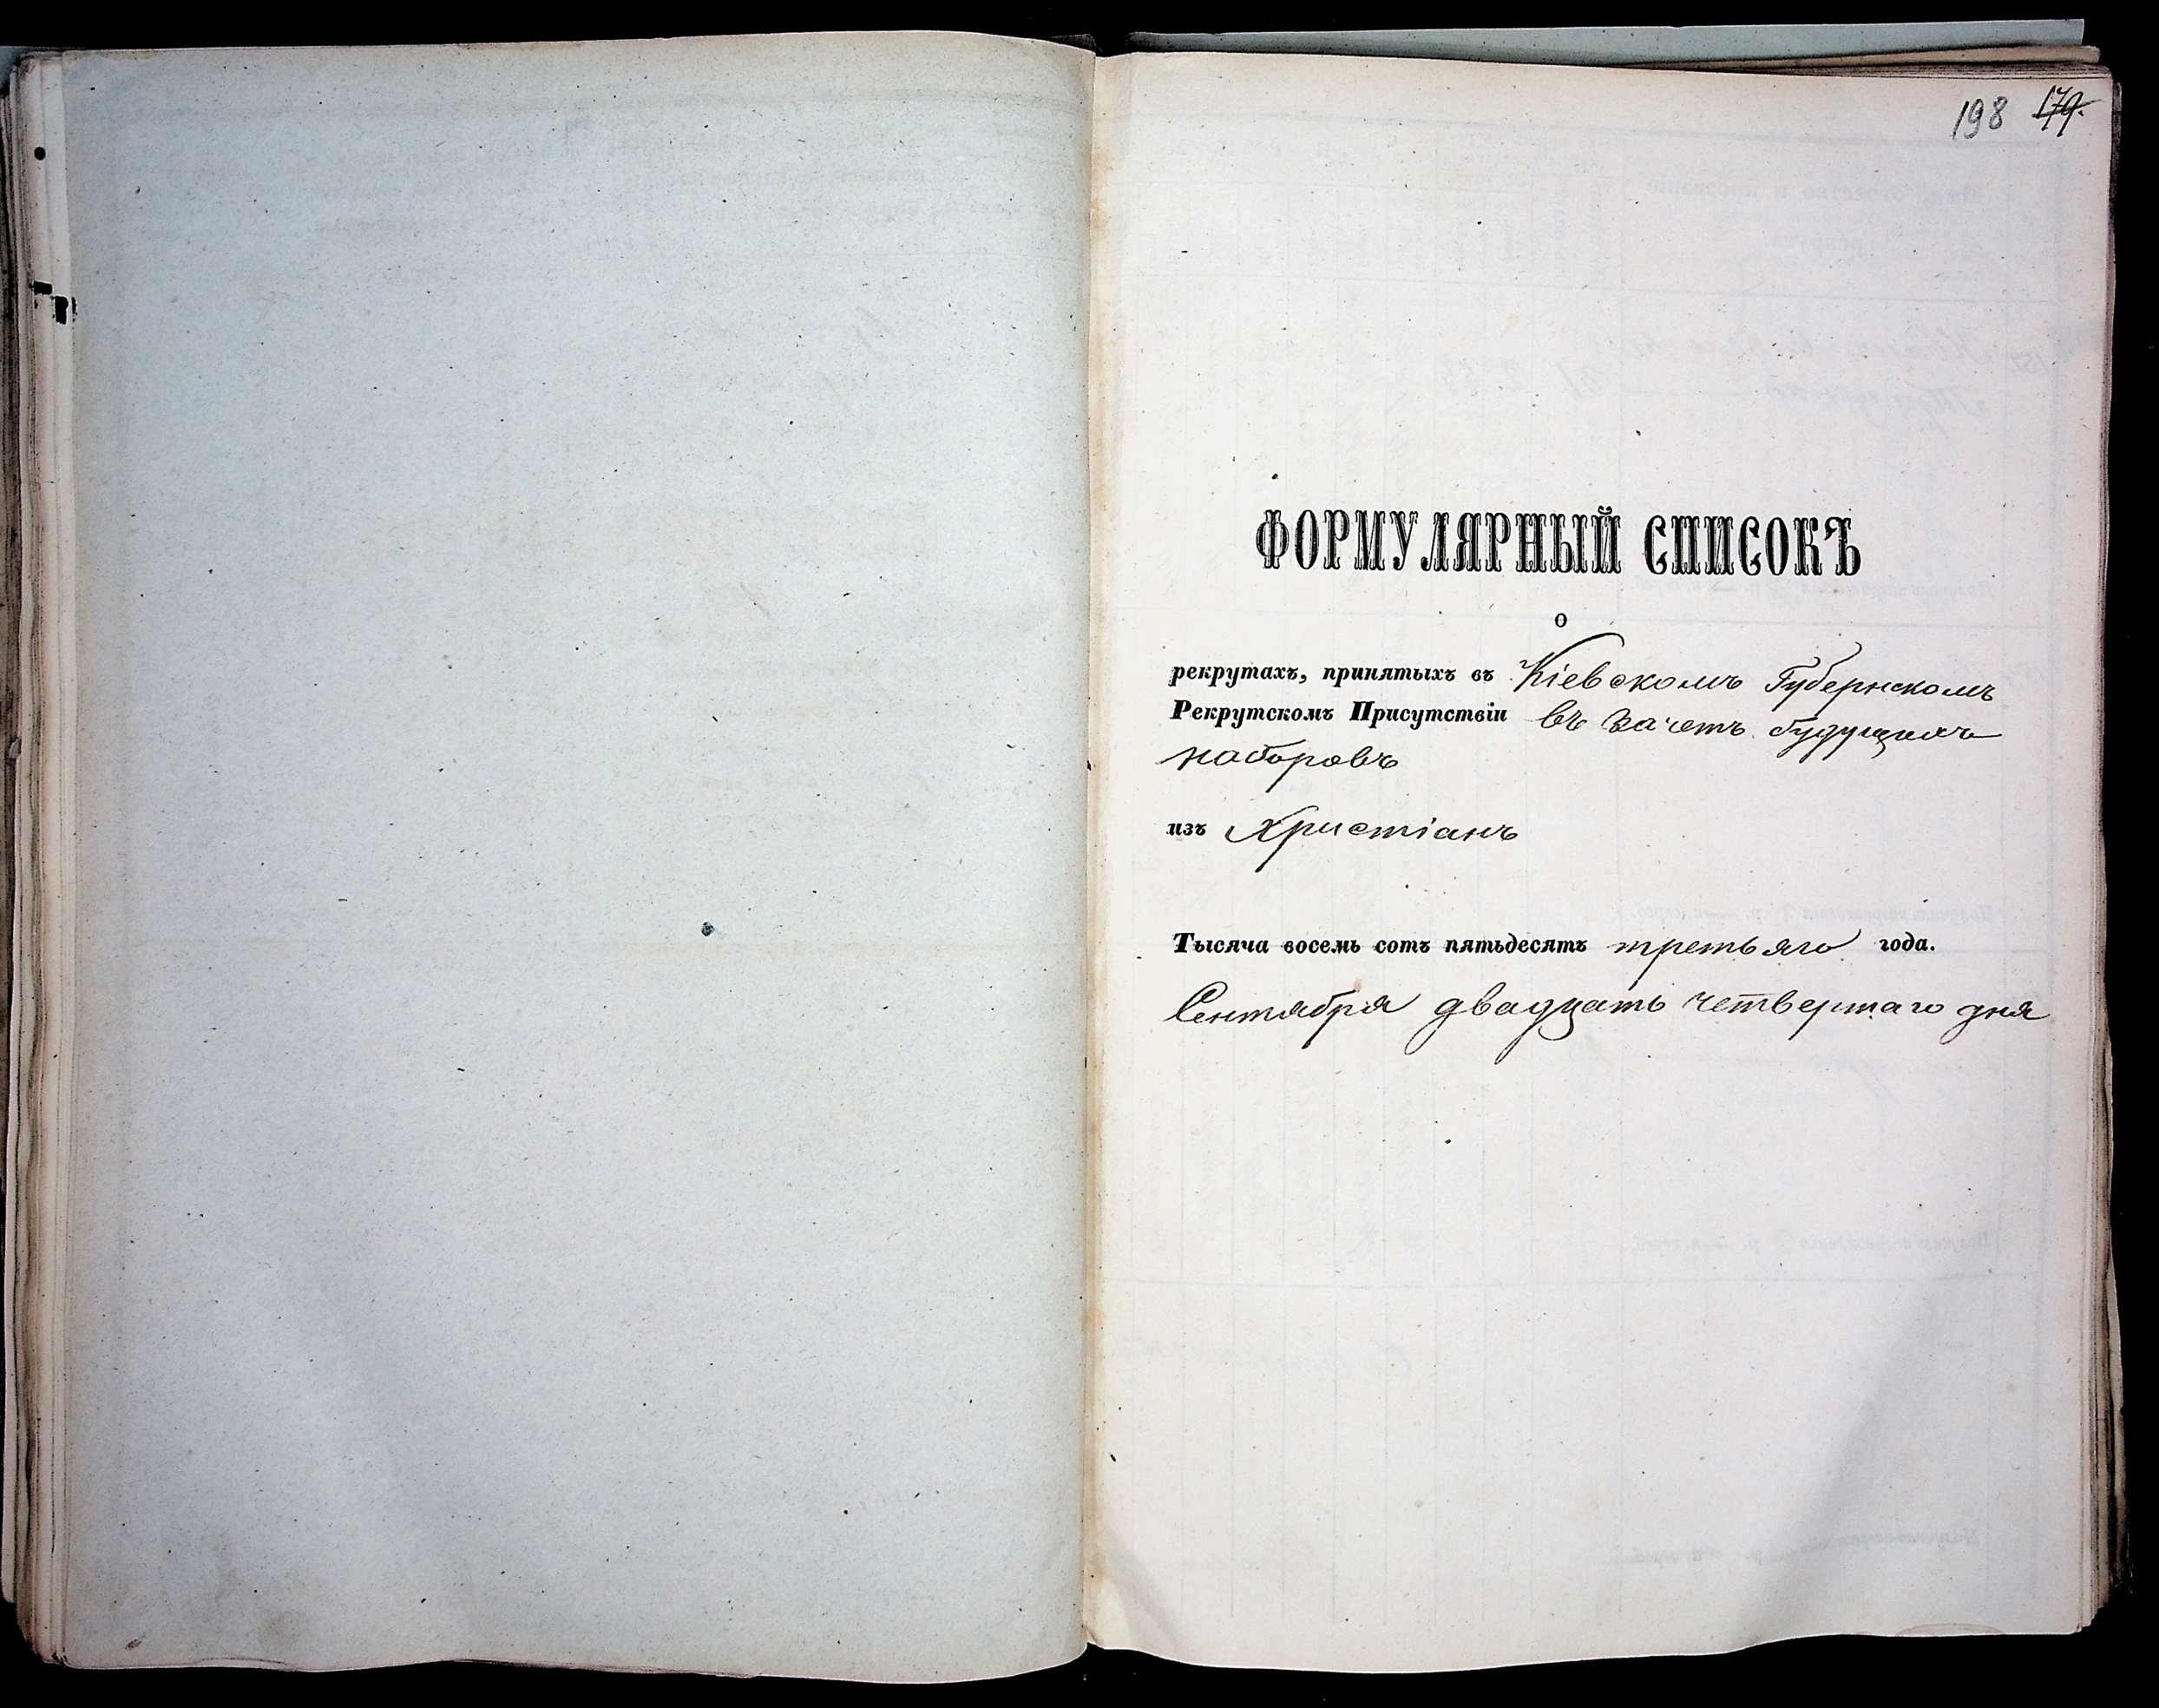 198 179.
ФОРМУЛЯРНЫЙ СПИСОКЪ
о
рекрутахъ, принятыхъ въ Кіевскомъ Губернскомъ
Рекрутскомъ Присутствіи въ зачетъ будущихъ
наборовъ
изъ Христіанъ
Тысяча восемь сотъ пятьдесятъ третьяго года.
Сентября двадцать четвертаго дня